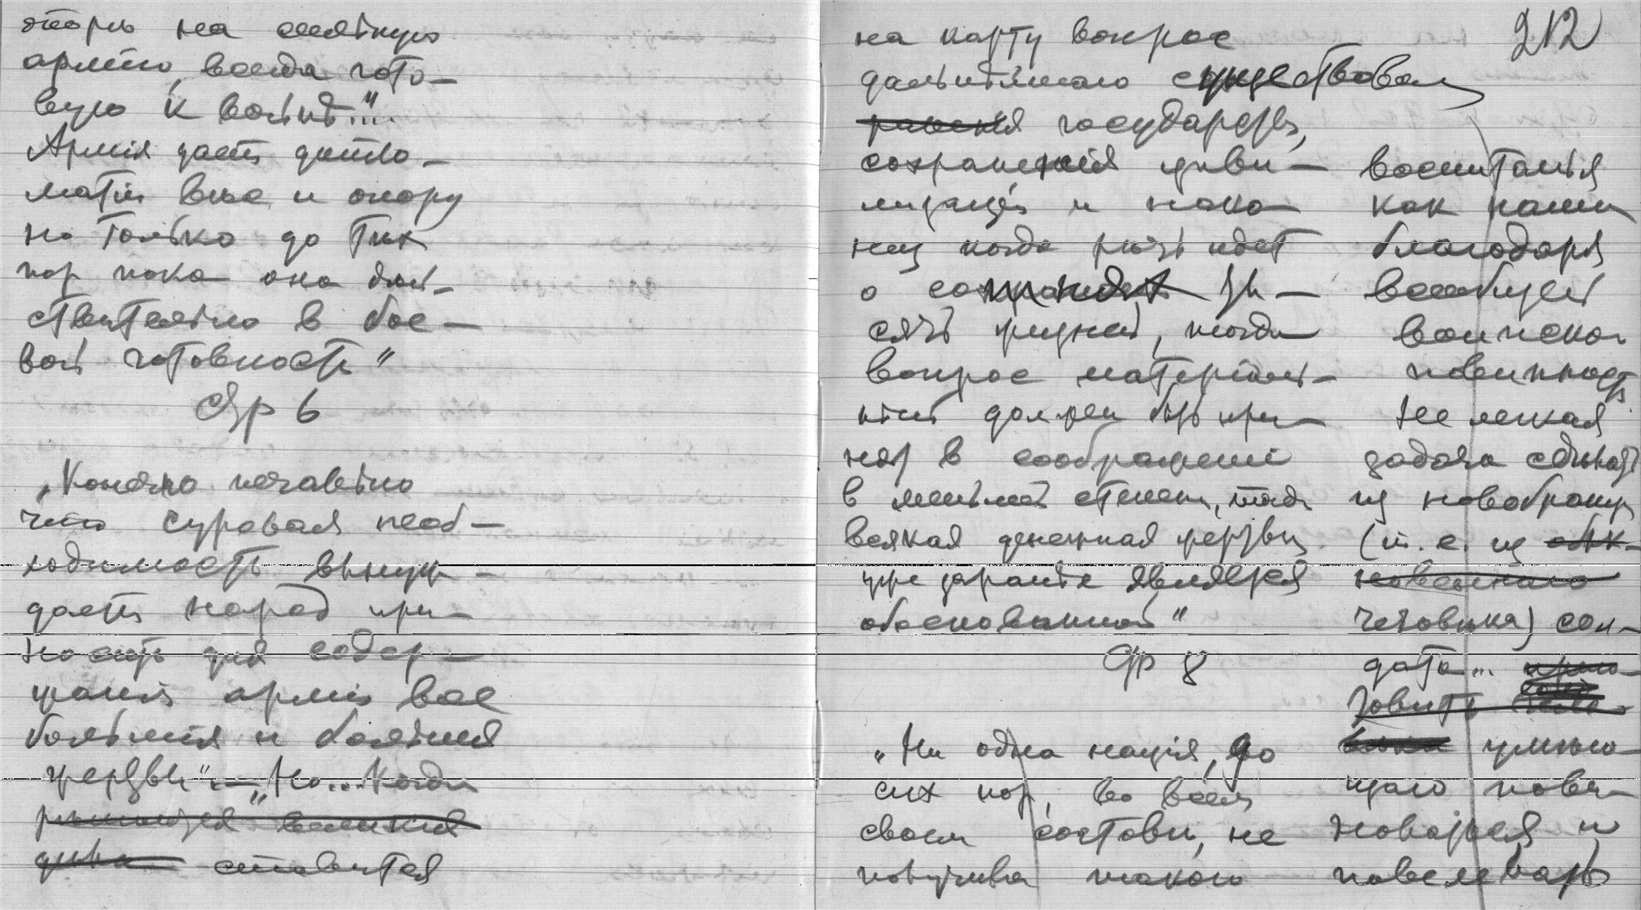 опорь на сильную
армію, всегда гото-
вую к войнѣ..."
Армія даетъ дипло-
матіи вѣс и опору
но только до тѣх
пор пока она дѣй-
ствительно в бое-
вой готовности"
Стр 6
„Конечно печально
что суровая необ-
ходимость вынуж-
даетъ народ при-
носить для содер-
жанія арміи все
большія и большія
жертвы" — „Но... когда
рѣшающая великая
ставится
212
на карту вопрос
дальнѣйшаго существован
ія государства,
сохраненія циви-
лизаціи и нако-
нец когда рѣчь идет
о ты-
сячѣ жизней, тогда
вопрос матеріаль-
ный должен быть при-
нят в соображеніе
в меньшей степени, тогда
всякая денежная жертва
уже заранѣе является
обоснованной"
Стр 8
„Ни одна нація, до
сих пор, во всем
своем составѣ, не
получила такого
воспитанія
как наши
благодаря
всеобщей
воинской
повинности
Не легкая
задача сдѣлать
из новобранца
(т. е. из обык-
новеннаго
человѣка) сол-
дата...
умѣю-
щаго пови-
новаться и
повелѣвать